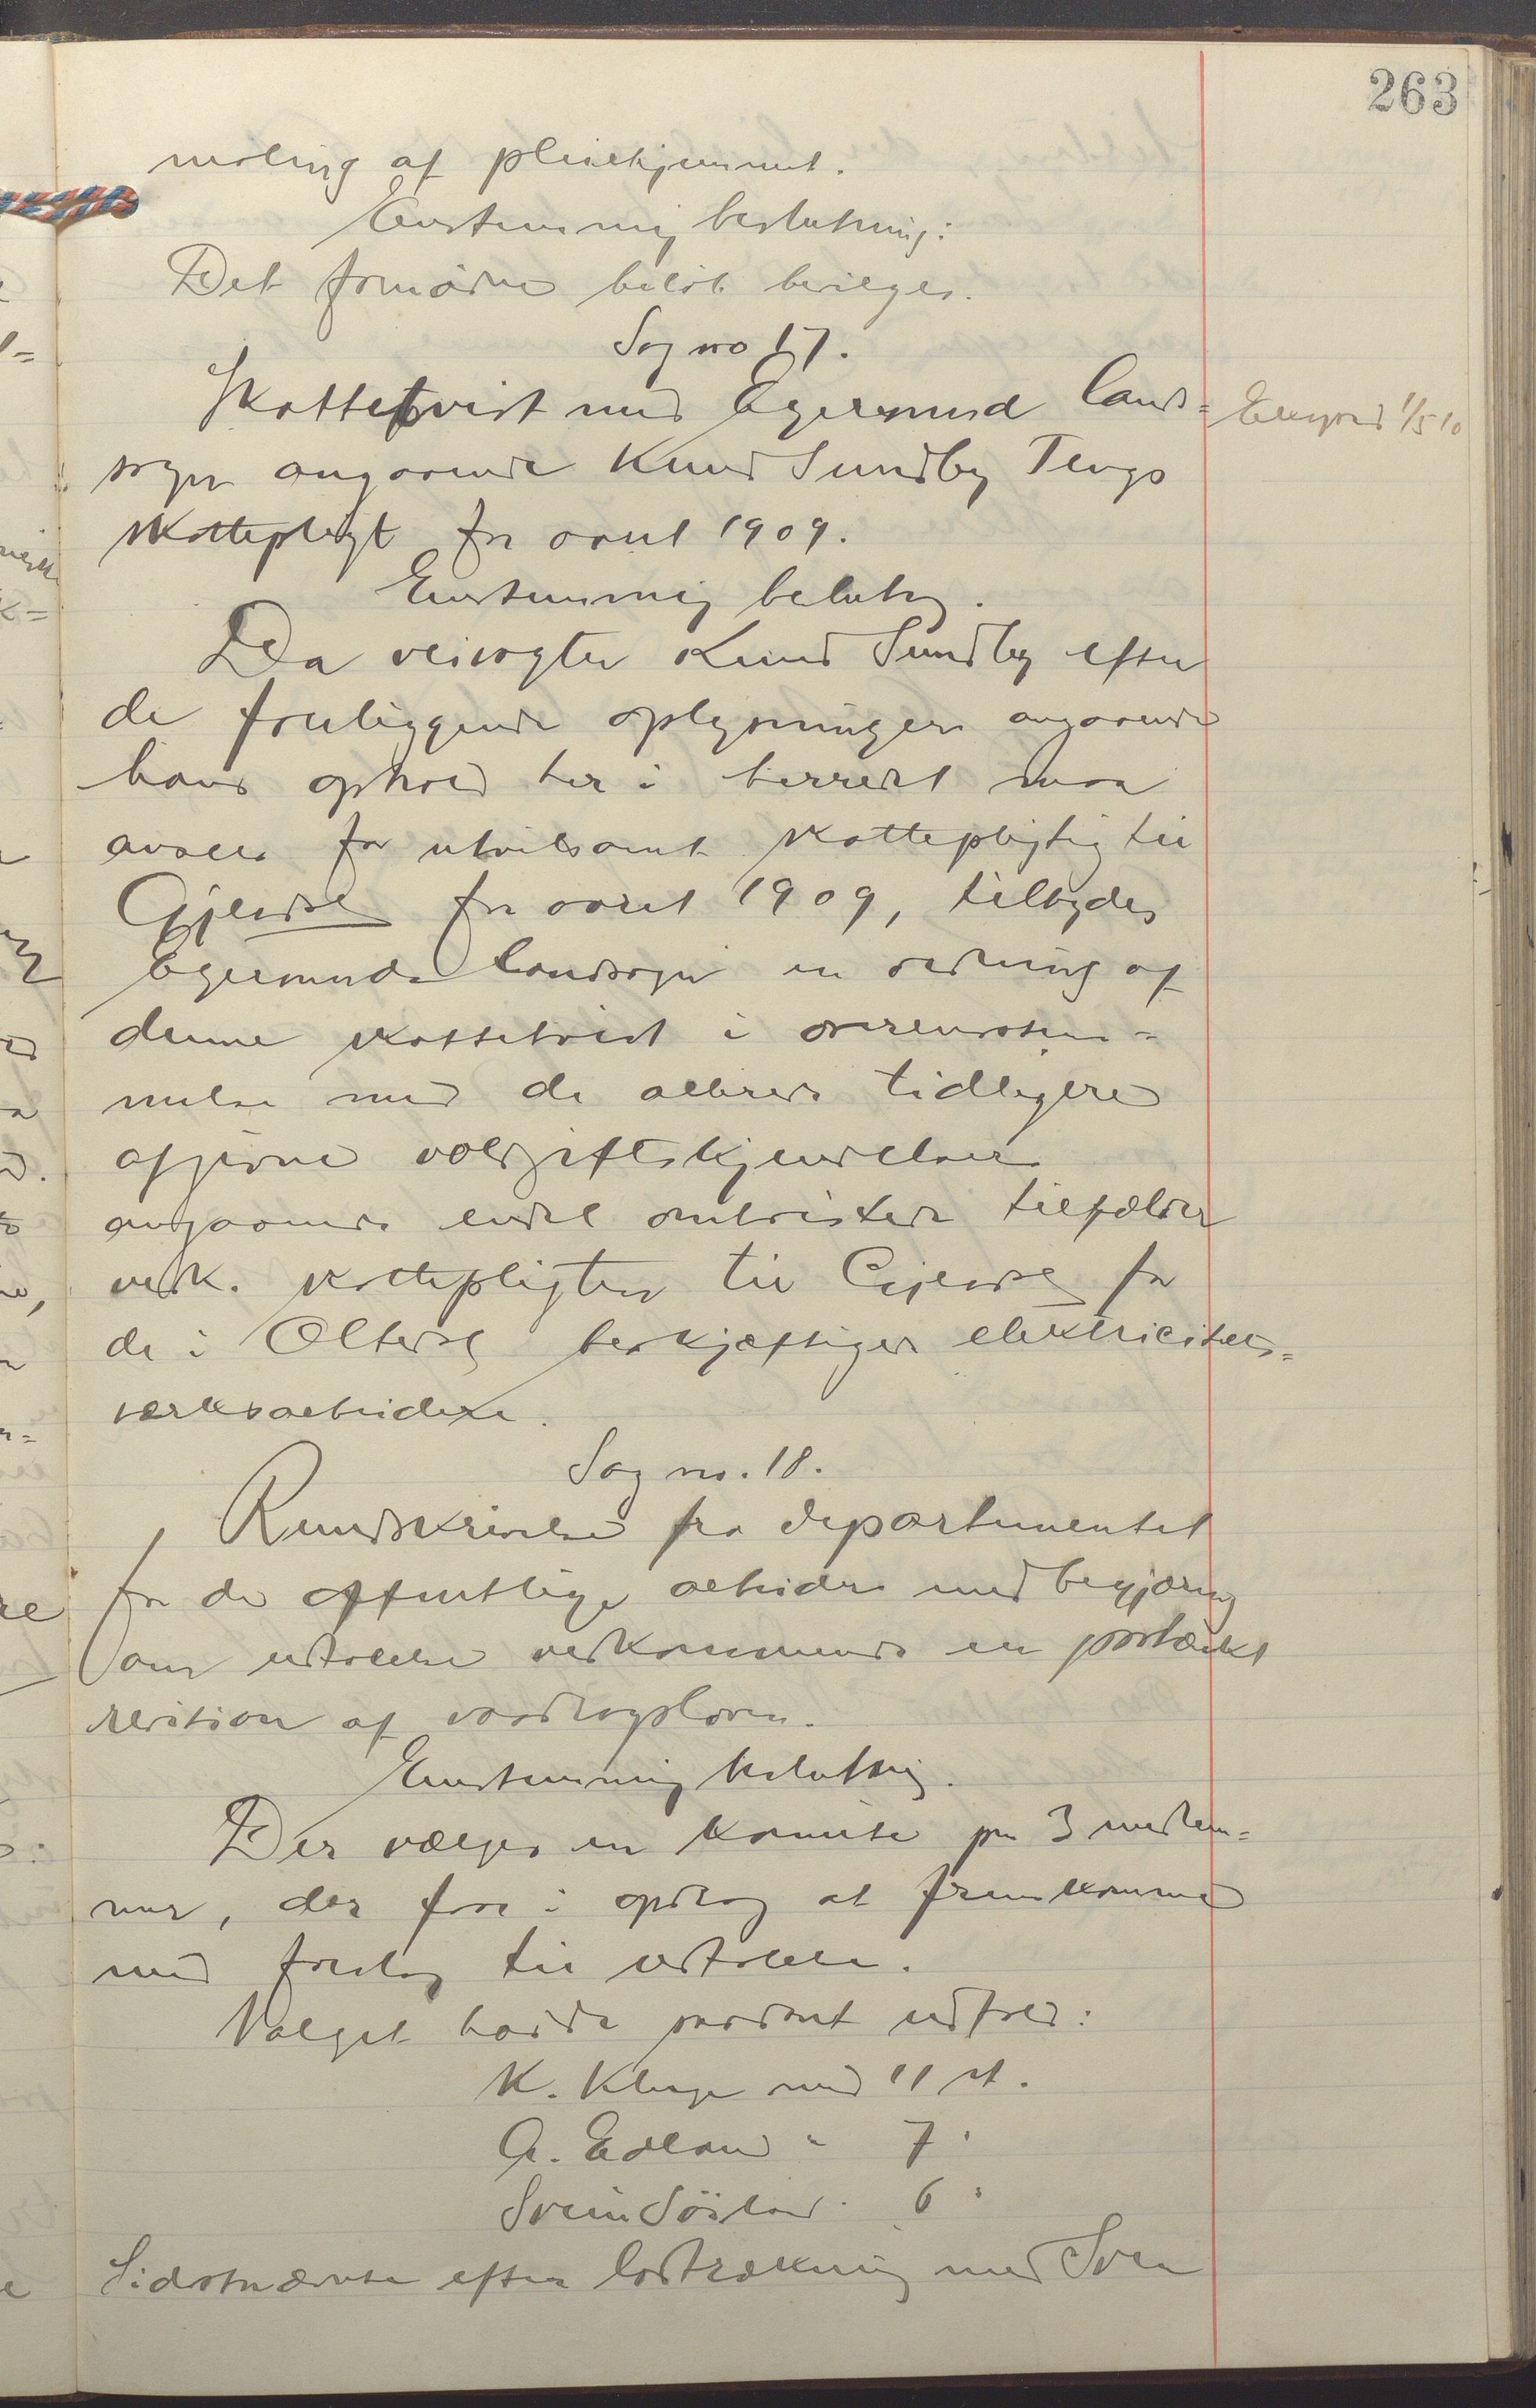 263
maling af pleiehjemmet.
Enstemmig beslutning:
Det fornødne beløb bevilges.
Sag no 17.
Skattetvist med Egersund land=
sogn angaaende Knud Sundby Tengs
skattepligt for aaret 1909.
Enstemmig beslutng.
Da veivogter Knud Sundby efter
de foreliggende oplysninger angaaende
hans ophold her i herredet maa
ansees for utvilsomt skattepligtig til
Gjesdal for aaret 1909, tilbydes
Egersunds landsogn en ordning af
denne skattetvist i overensstem=
melse med de allerede tidligere
afgivne voldgiftskjendelser
angaaende endel omtvistede tilfælder
vedk. skattepligten til Gjesdal for
de i Oltedal beskjæftiger elektricitets=
værksarbeidere.
Sag no. 18.
Rundskrivelse fra departementet
for de offentlige arbeider med begjæring
om udtalelse vedkommende en påtænkt
revision af vasdragsloven.
Enstemmig beslutning.
Der vælges en komite paa 3 medlem=
mer, der faar i opdrag at fremkomme
med forslag til udtalelse.
Valget havde saadant udfald:
K. Kluge med 11 st.
A. Edland " 7 "
Svein Söiland " 6 "
Sidstnævnte efter lodtrækning med Sven
Ekspd 1/5 10